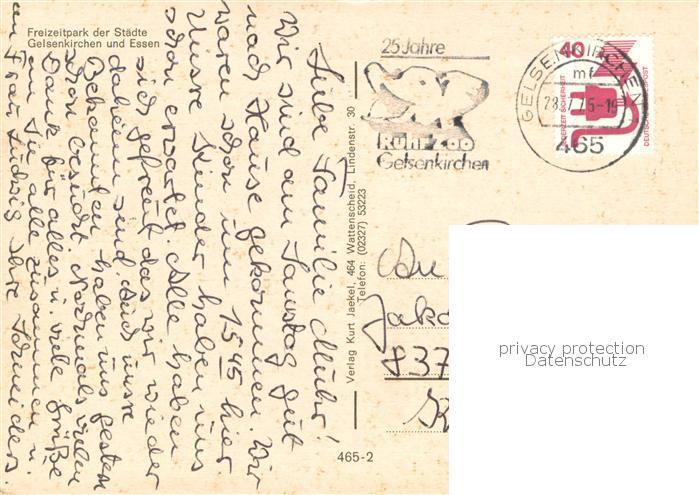 Freizeitpark der Städte
Gelsenkirchen und Essen
Liebe Familie Muhr!
Wir sind am Samstag gut
nach Hause gekommen. Wir
waren schon um 15 45 hier
Unsre Kinder haben uns
schon erwartet. Alle haben
sich gefreut das wir wieder
daheim sind. Auch unsre
Bekannten haben uns gestern
schon besucht Nochmals vielen
Dank für alles u. viele Grüße
an Sie alle zusammen u.
an Frau Ludwig Ihre Schneiders.
Verlag Kurt Jaekel, 464 Wattenscheid, Lindenstr. 30
Telefon: (02327) 53223
465-2
25 Jahre
RUHR ZOO
Gelsenkirchen
GELSENKIRCHEN
mf
28.7.75-19
465
40
JEDERZEIT SICHERHEIT
DEUTSCHE BUNDESPOST
An
Jako
837
privacy protection
Datenschutz